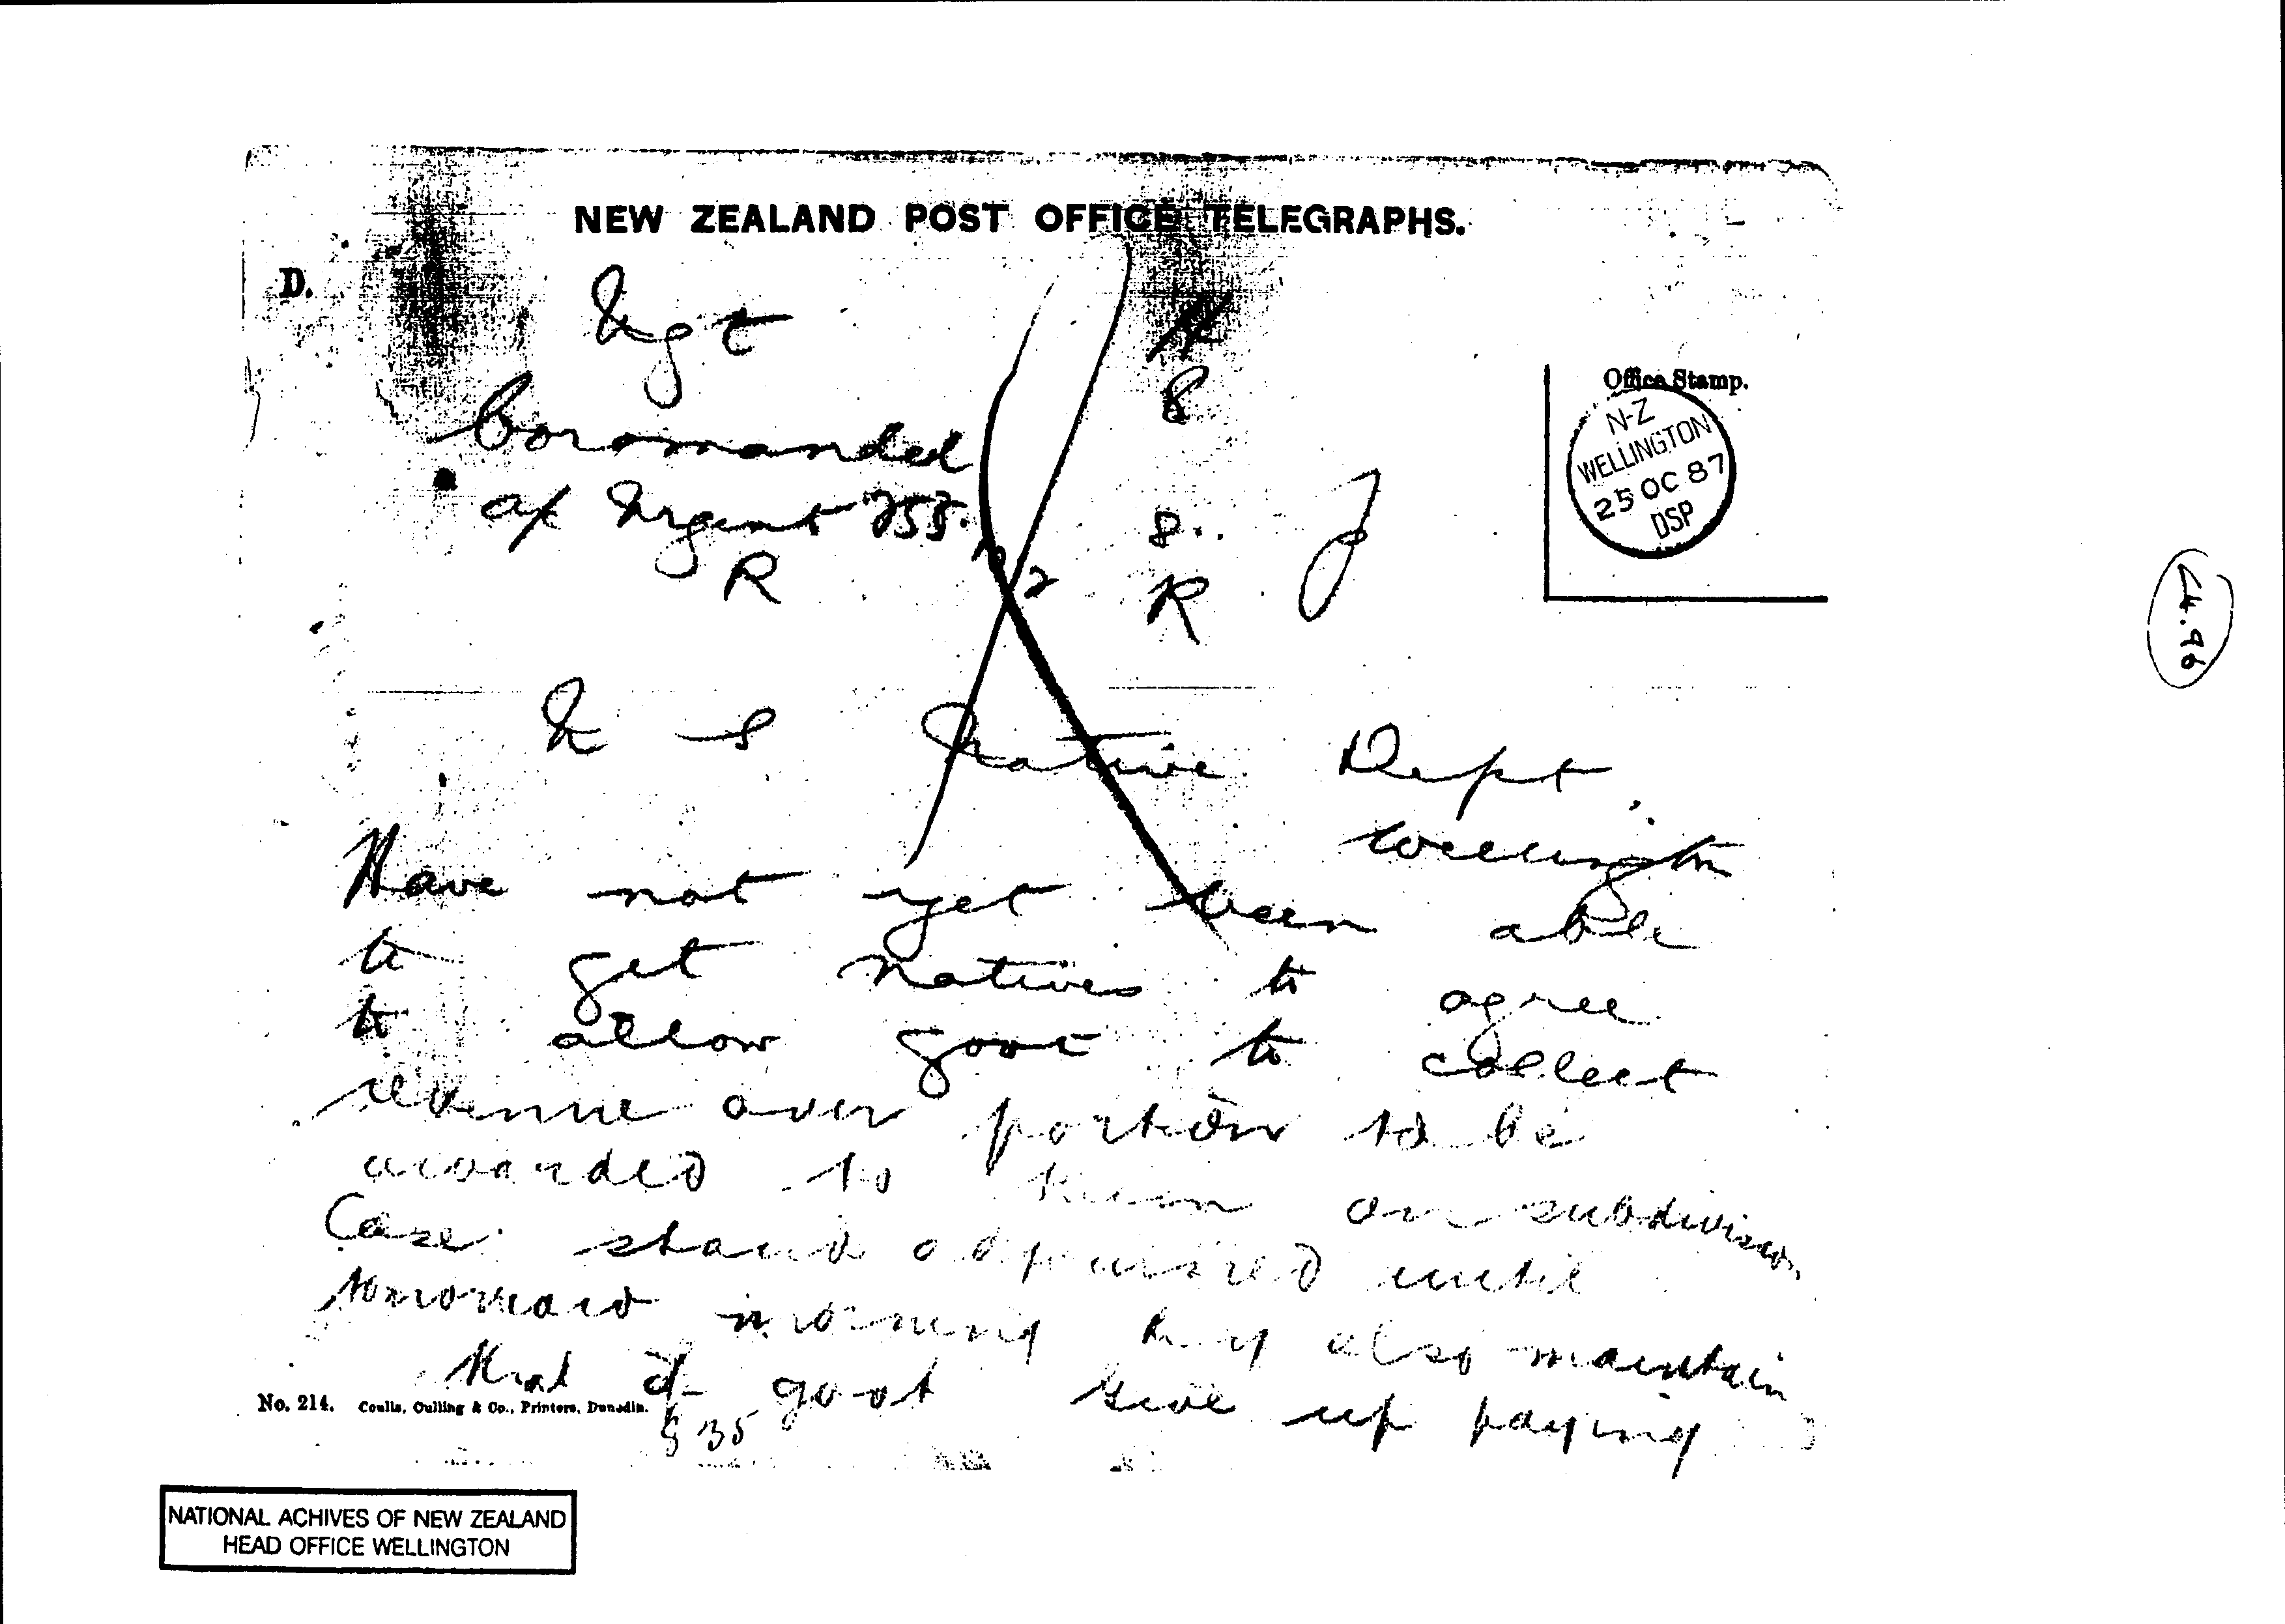 NEW ZEALAND POST OFFICE TELEGRAPHS.
D.
Ugt
8
Office Stamp.
N-Z
WELLINGTON
25 OC 87
DSP
Coromandel
Urgent 253.
8.
R
R
U S Native Dept
Wellington
Have not yet been able
to get natives to agree
to allow govt to collect
revenue over portion to be
awarded to them on subdivision
Case stand adjourned until
tomorrow morning they also maintain
that if govt give up paying
No. 214. Coulls, Culling & Co., Printers, Dunedin.
35
NATIONAL ACHIVES OF NEW ZEALAND
HEAD OFFICE WELLINGTON